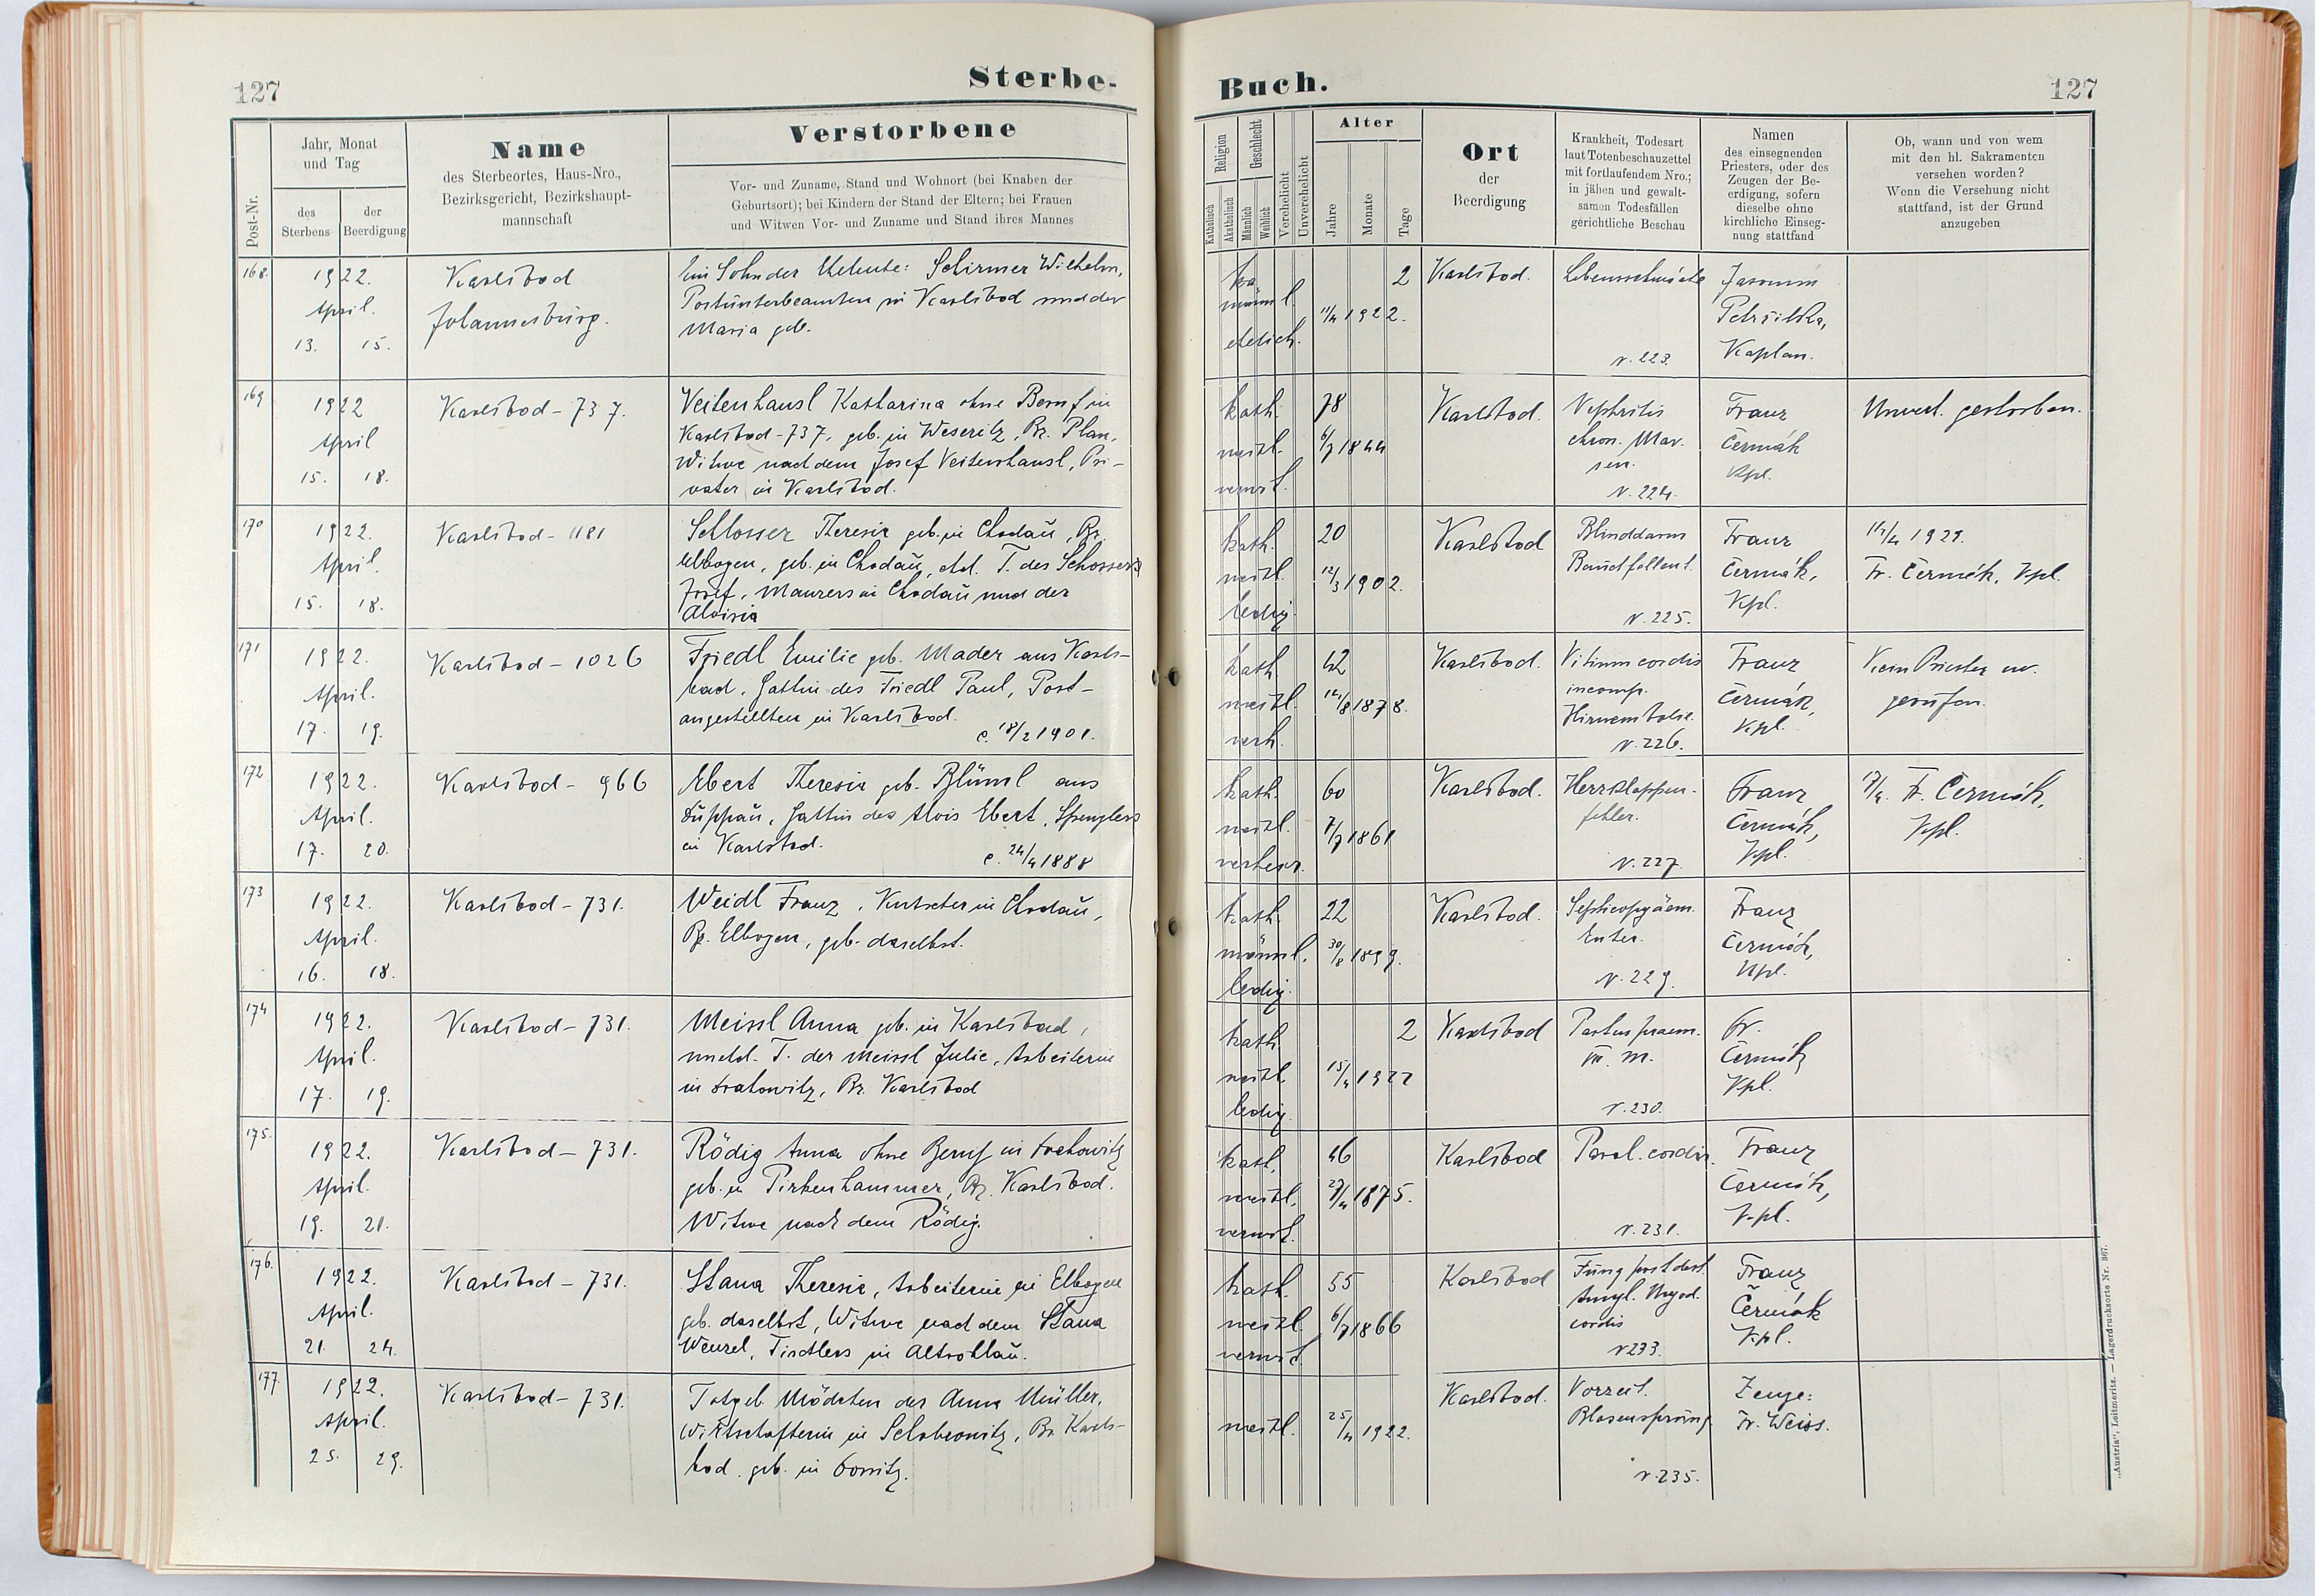 127
Sterbe-
Post-Nr.
Jahr, Monat
und Tag
des
Sterbens
der
Beerdigung
Name
des Sterbeortes, Haus-Nro.,
Bezirksgericht, Bezirkshaupt-
mannschaft
Verstorbene
Vor- und Zuname, Stand und Wohnort (bei Knaben der
Geburtsort); bei Kindern der Stand der Eltern; bei Frauen
und Witwen Vor- und Zuname und Stand ihres Mannes
168.
1922.
April.
13. 15.
Karlsbad
Johannesburg.
Ein Sohn der Eheleute: Schirmer Wilhelm,
Postunterbeamten in Karlsbad und der
Maria geb.
169
1922
April
15. 18.
Karlsbad - 737.
Veitenhansl Katharina ohne Beruf in
Karlsbad - 737, geb. in Weseritz, Bz. Plan,
Witwe nach dem Josef Veitenhansl, Pri-
vater in Karlsbad.
170
1922.
April.
15. 18.
Karlsbad - 1181
Schlosser Theresia geb. in Chodau, Bz.
Elbogen, geb. in Chodau, ehl. T. des Schossers
Josef, Maurers in Chodau und der
Aloisia
171
1922.
April.
17. 19.
Karlsbad - 1026
Friedl Emilie geb. Mader aus Karls-
bad, Gattin des Friedl Paul, Post-
angestellten in Karlsbad.
c. 18/2 1901.
172
1922.
April.
17. 20.
Karlsbad - 966
Ebert Theresia geb. Blüml aus
Duppau, Gattin des Alois Ebert, Spenglers
in Karlsbad.
c. 24/4 1888
173
1922.
April.
16. 18.
Karlsbad - 731.
Weidl Franz, Kutscher in Chodau,
Bz. Elbogen, geb. daselbst.
174
1922.
April.
17. 19.
Karlsbad - 731.
Meissl Anna geb. in Karlsbad,
unehl. T. der Meissl Julie, Arbeiterin
in Drahowitz, Bz. Karlsbad
175.
1922.
April.
19. 21.
Karlsbad - 731.
Rödig Anna ohne Beruf in Drahowitz
geb. in Pirkenhammer, Bz. Karlsbad.
Witwe nach dem Rödig.
176.
1922.
April.
21. 24.
Karlsbad - 731.
Stana Theresia, Arbeiterin in Elbogen
geb. daselbst, Witwe nach dem Stana
Wenzel, Tischlers in Altrohlau.
177
1922.
April.
25. 29.
Karlsbad - 731.
Totgeb. Mädchen der Anna Müller,
Wirtschafterin in Schobrowitz, Bz. Karls-
bad, geb. in
Buch.
127
Religion
Katholisch
Akatholisch
Geschlecht
Männlich
Weiblich
Verehelicht
Unverehelicht
Alter
Jahre
Monate
Tage
Ort
der
Beerdigung
Krankheit, Todesart
laut Totenbeschauzettel
mit fortlaufendem Nro.;
in jähen und gewalt-
samen Todesfällen
gerichtliche Beschau
Namen
des einsegnenden
Priesters, oder des
Zeugen der Be-
erdigung, sofern
dieselbe ohne
kirchliche Einseg-
nung stattfand
Ob, wann und von wem
mit den hl. Sakramenten
versehen worden?
Wenn die Versehung nicht
stattfand, ist der Grund
anzugeben
ka
männl.
ehelich.
2
11/4 1922.
Karlsbad.
Lebensschwäche
N. 223.
Petrzilka,
Kaplan.
kath.
weibl.
verwit.
78
6/7 1844
Karlsbad.
Nephritis
chron. Mar.
sen.
N. 224.
Franz
Čermák
Kpl.
Unvers. gestorben.
kath.
weibl.
ledig.
20
12/3 1902.
Karlsbad
Blinddarm
Bauchfellent.
N. 225.
Franz
Čermák,
Kpl.
Fr. Čermák, Kpl.
kath.
weibl.
verh.
42
1878.
Karlsbad.
Vitium cordis
incomp.
Hirnembolie.
N. 226.
Franz
Čermák,
Kpl.
Kein Priester
gerufen.
kath.
weibl.
verheir.
60
7/7 1861
Karlsbad.
Herzklappen-
fehler.
N. 227.
Franz
Čermák,
Kpl.
17/4. Fr. Čermák,
Kpl.
kath.
männl.
ledig.
22
30/8 1899.
Karlsbad.
Septicopyäem.
Enter.
N. 229.
Franz
Čermák,
Kpl.
kath.
weibl.
ledig.
2
15/4 1922
Karlsbad
Partus praem.
M.
N. 230.
Fr.
Čermák
Kpl.
kath.
weibl.
verwit.
46
27/4 1875.
Karlsbad
Paral. cordis.
N. 231.
Franz
Čermák,
Kpl.
kath.
weibl.
verwit.
55
6/7 1866
Karlsbad
cordis
N 233.
Franz
Čermák
Kpl.
weibl.
25/4 1922.
Karlsbad.
Vorzeit.
Blasensprung
N. 235.
Zeuge:
Fr. Weiss.
„Austria", Leitmeritz. — Lagerdrucksorte Nr. 367.